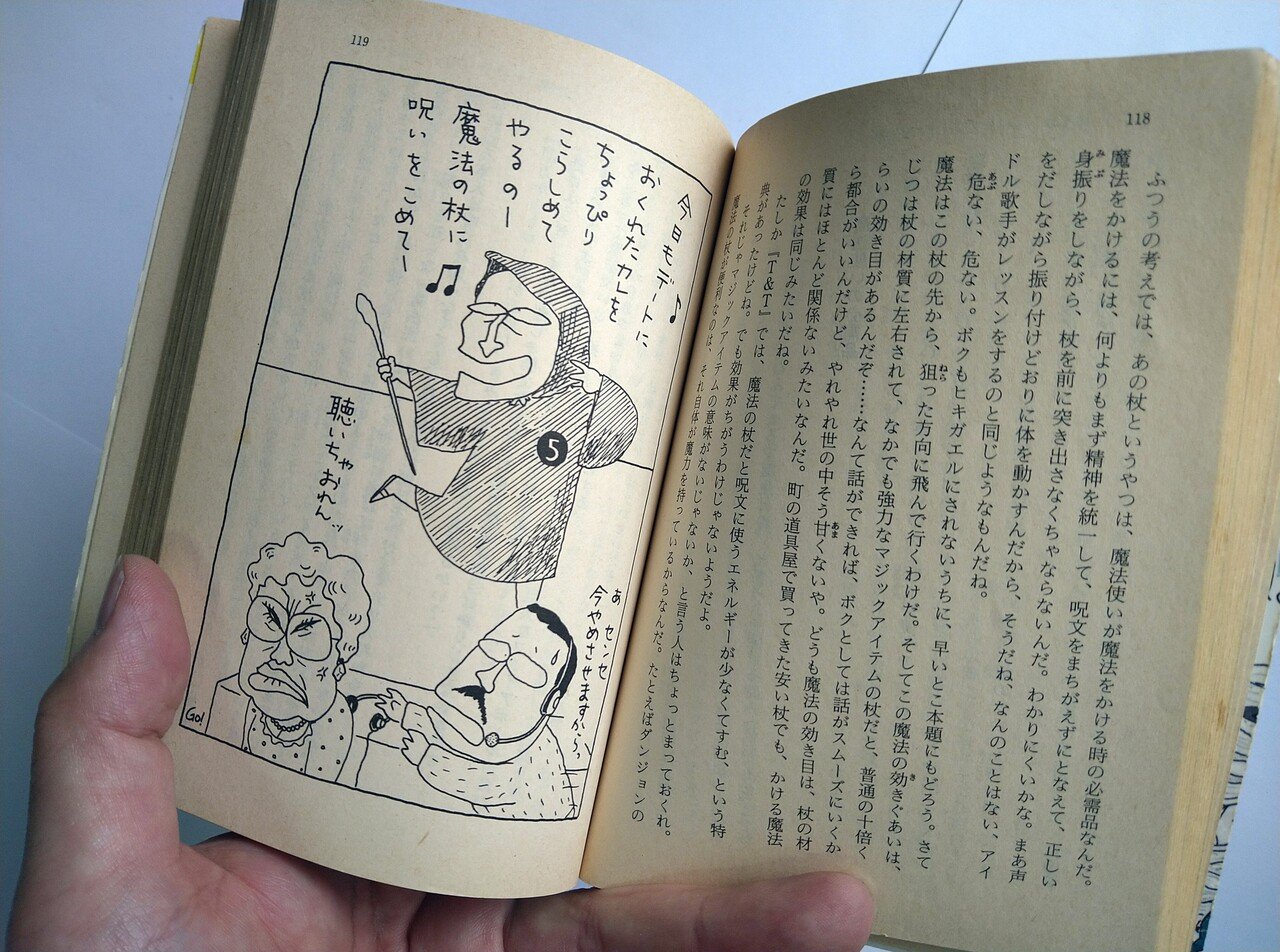 118
ふつうの考えでは、あの杖というやつは、魔法使いが魔法をかける時の必需品なんだ。
魔法をかけるには、何よりもまず精神を統一して、呪文をまちがえずにとなえて、正しい
身振りをしながら、杖を前に突き出さなくちゃならないんだ。わかりにくいかな。まあ声
をだしながら振り付けどおりに体を動かすんだから、そうだね、なんのことはない、アイ
ドル歌手がレッスンをするのと同じようなもんだね。
危ない、危ない。ボクもヒキガエルにされないうちに、早いとこ本題にもどろう。さて
魔法はこの杖の先から、狙った方向に飛んで行くわけだ。そしてこの魔法の効きぐあいは、
じつは杖の材質に左右されて、なかでも強力なマジックアイテムの杖だと、普通の十倍く
らいの効き目があるんだぞ……なんて話ができれば、ボクとしては話がスムーズにいくか
ら都合がいいんだけど、やれやれ世の中そう甘くないや。どうも魔法の効き目は、杖の材
質にはほとんど関係ないみたいなんだ。町の道具屋で買ってきた安い杖でも、かける魔法
の効果は同じみたいだね。
たしか『T&T』では、魔法の杖だと呪文に使うエネルギーが少なくてすむ、という特
典があったけどね。でも効果がちがうわけじゃないようだよ。
それじゃマジックアイテムの意味がないじゃないか、と言う人はちょっとまっておくれ。
魔法の杖が便利なのは、それ自体が魔力を持っているからなんだ。たとえばダンジョンの
119
今日もデートに
おくれたカレを
ちょっぴり
こらしめて
やるのー
魔法の杖に
呪いをこめてー
5
聴いちゃおれんッ
あ センセ
今やめさせますから
Go!